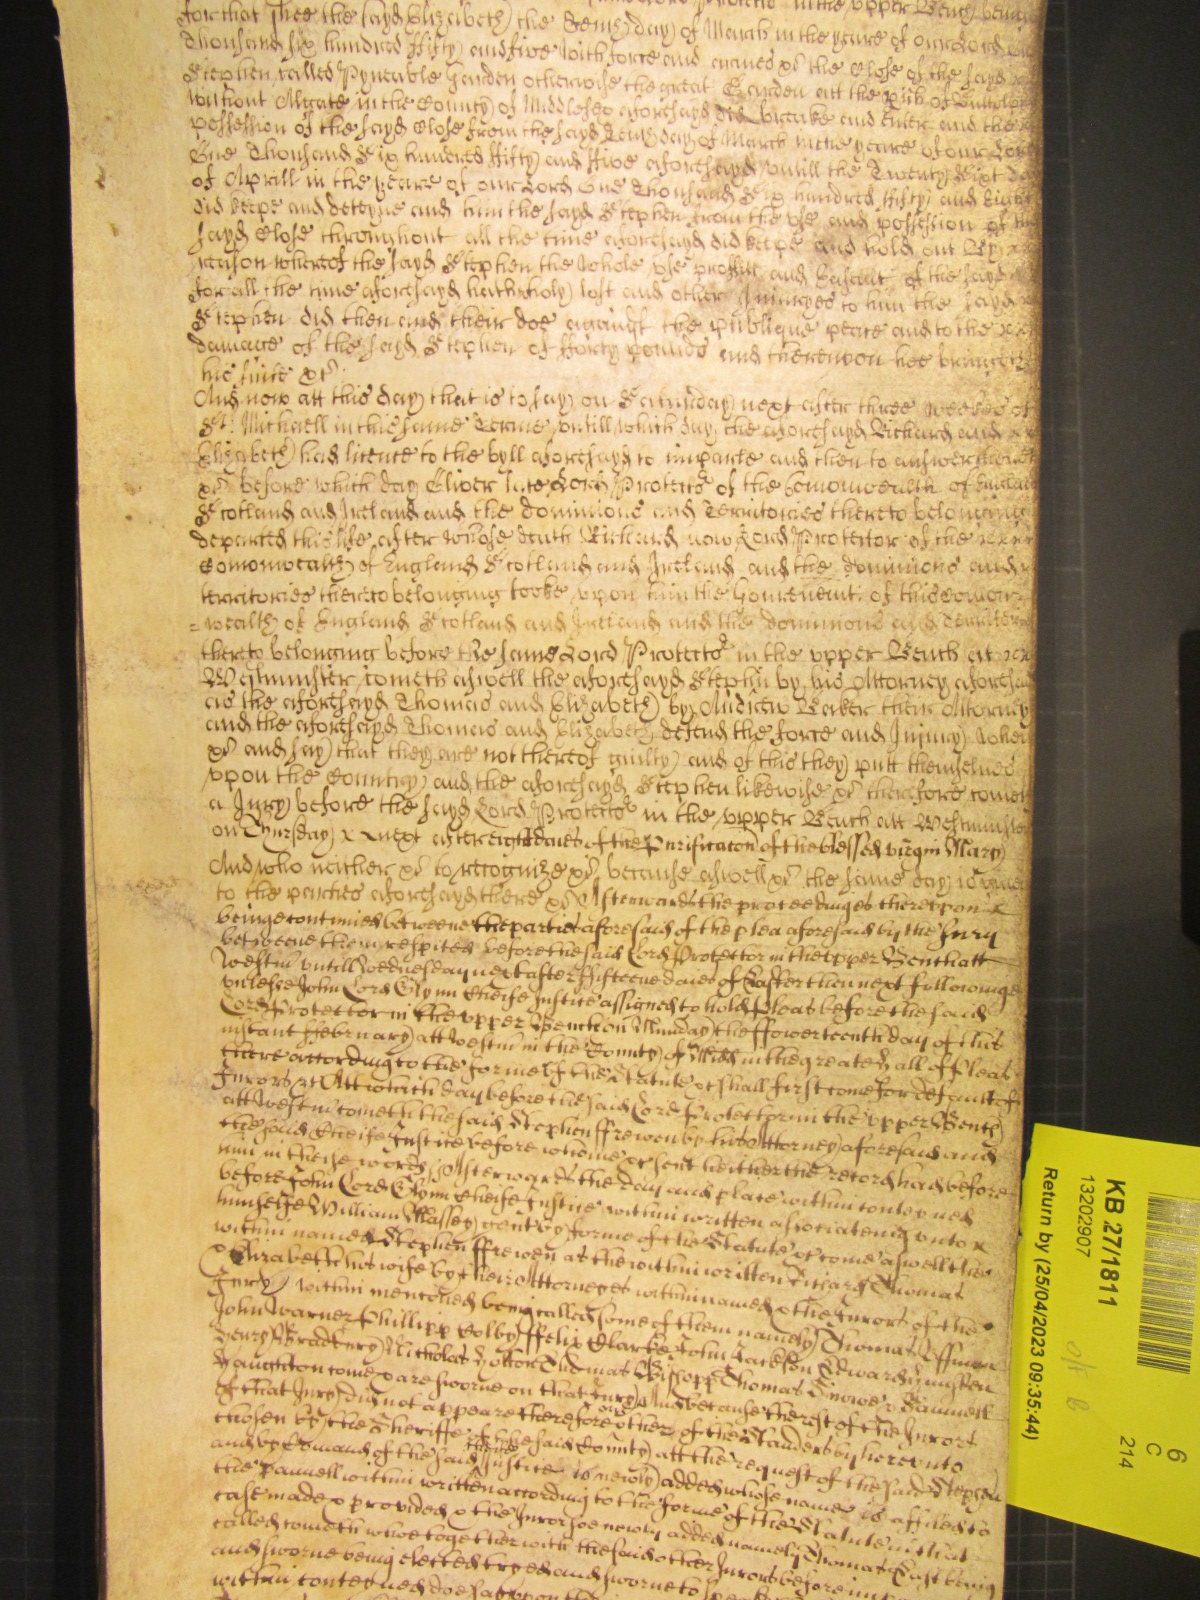 for that shee the sayd Elizabeth the Tenth day of March in the yeare of our Lord one
Thousand six hundred ffifty and five with force and armes xc the Close of the sayd
Stephen called Pyneable Garden otherwise the great Garden att the pish of Buttolph
without Algate in the County of Middlesex aforesayd did breake and Enter and the
possession of the sayd Close from the sayd Tenth day of March in the yeare of our Lord
One Thousand Six hundred ffifty and ffive aforesayd untill the Twenty Sixt day
of Aprill in the yeare of our Lord One Thousand Six hundred ffifty and Eight
did keepe and deteyne and him the sayd Stephen from the use and possession of the
sayd Close throughout all the time aforesayd did keepe and hold out By
reason whereof the sayd Stephen the whole use proffitt and Easaint of the sayd
for all the time aforesayd hath wholy lost and other Iniuryes to him the sayd
Stephen did then and their doe against the publique peace and to the
damage of the sayd Stephen of fforty pounds and thereupon hee bringeth
his suite xc
And now att this day that is to say on Saturday next after three weekes of
St Michaell in this same Terme untill which day the aforesayd Richard and
Elizabeth had licence to the byll aforesayd to imparle and then to answer
xc before which day Oliver late Lord Protector of the Comonwealth of England
Scotland and Ireland and the dominions and Territories thereto belonging
departed this life after whose death Richard now Lord Protector of the
Comonwealth of England Scotland and Ireland and the dominions and
territories thereto belonging tooke upon him the Governemt of this Comon
=wealth of England Scotland and Ireland and the dominions and Territories
thereto belonging before the same Lord Protector in the upper Bench att
Westminster cometh aswell the aforesayd Stephen by his Attorney aforesayd
as the aforesayd Thomas and Elizabeth by Andrew Baker their Attorney
and the aforesayd Thomas and Elizabeth defend the force and Iniury when
xc and say that they are not thereof guilty and of this they putt themselves
upon the Countrey and the aforesayd Stephen likewise xc therefore come
a Jury before the sayd Lord Protector in the upper Bench att Westminster
on Thursday x x next after eight daies of the Purificacon of the blessed virgin Mary
And who neither xc to recognize xc because aswell xc the same day is given
to the parties aforesayd there xc Afterwards the proceedinges thereupon x
beinge continued betweene the parties aforesaid of the plea aforesaid by the Jury
betweene them respited before the said Lord Protector in the upper Bench att
Westm untill Wednesday next after ffifteene daies of Easter then next followinge
unlesse John Lord Glynn Cheife Justice assigned to hold Pleas before the said
Lord Protector in the upper Bench on Munday the ffowerteenth day of this
instant ffebruary att Westm in the County of Midd in the greate hall of Pleas
there according to the forme of the Statute xc shall first come for default of
Jurors xc Att which day before the said Lord Protector in the upper Bench
att Westm cometh the said Stephen ffrewen by his Attorney aforesaid and
the said Cheife Justice before whome xc sent heither the record had before
him in these words xc Afterwards the day and place within conteyned
before John Lord Glynn Cheife Justice within written associateing unto x
himselfe William Massey gent by forme of the Statute xc come aswell the
within named Stephen ffrewen as the within written Richard Thomas
& Elizabeth his wife by their Attorneyes within named & the Jurors of the
Jury within mentioned being called some of them namely Thomas
John Warner Phillipp Colby ffelix Clarke John Jackson Edward
Henry Bradbury Nicholas Thomas Bishopp Thomas Samuell
Haughton come & are sworne on that Jury And because the rest of the Jurors
of that Jury did not appeare therefore others of the Standers by hereunto
chosen by the Sheriffe of the said County att the request of the said Stephen
and by Comand of the said Cheife Justice is newly added whose name is affiled to
the pannell within written according to the forme of the Statute in that
case made & provided & the Juror soe newly added namely Thomas East being
called cometh whoe together with the said other Jurors before
and sworne being elected tryed and sworne to speake
within conteyned doe say upon
KB 27/1811
13202907
Return by (25/04/2023 09:35:44)
6
C
214